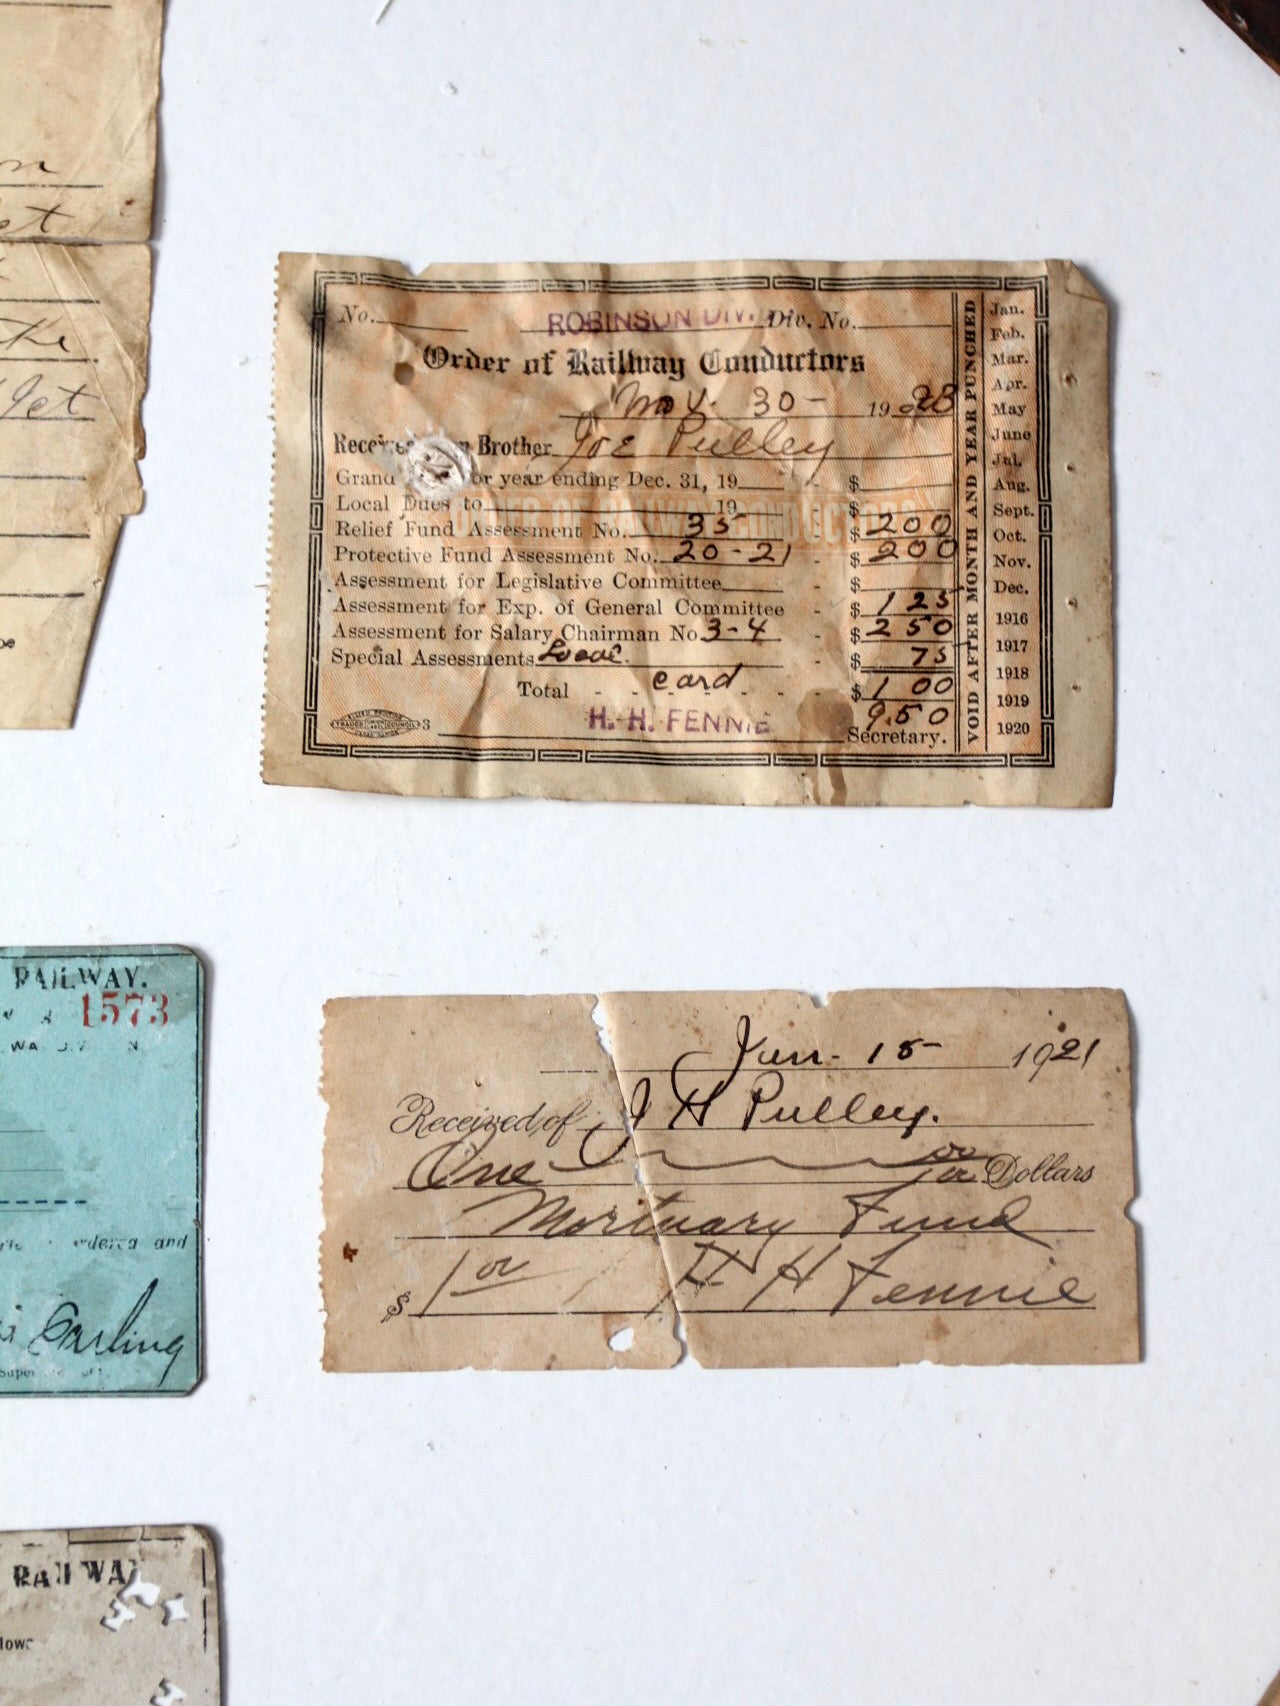 st
RAILWAY.
1573
and
Carling
No. ROBINSON DIV. Div. No.
Order of Railway Conductors
May. 30- 19
Brother Joe Pulley
Grand or year ending Dec. 31, 19 $
Local Dues to 19 $
Relief Fund Assessment No. 35 $ 200
Protective Fund Assessment No. 20-21 - $ 200
Assessment for Legislative Committee - $
Assessment for Exp. of General Committee - $ 125
Assessment for Salary Chairman No 3-4 - $ 250
Special Assessments Local. - $ 75
Total - - card - - - - $ 1 00
9.50
H. H. FENNIE
Secretary.
ORDER OF RAILWAY CONDUCTORS
VOID AFTER MONTH AND YEAR PUNCHED
Jan.
Feb.
Mar.
Apr.
May
June
Jul.
Aug.
Sept.
Oct.
Nov.
Dec.
1916
1917
1918
1919
1920
Jan- 15- 1921
Received of J H Pulley.
One 00 Dollars
Mortuary Fund
$ 1 00 H H Fennie
RAILWAY